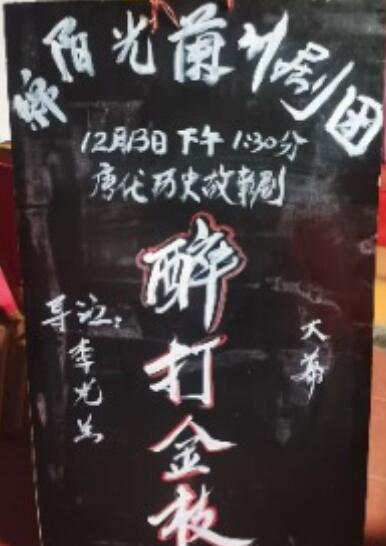 绵阳光兰川剧团
12月13日下午1:30分
唐代历史故事剧
醉打金枝
大幕
导演：
李光兰